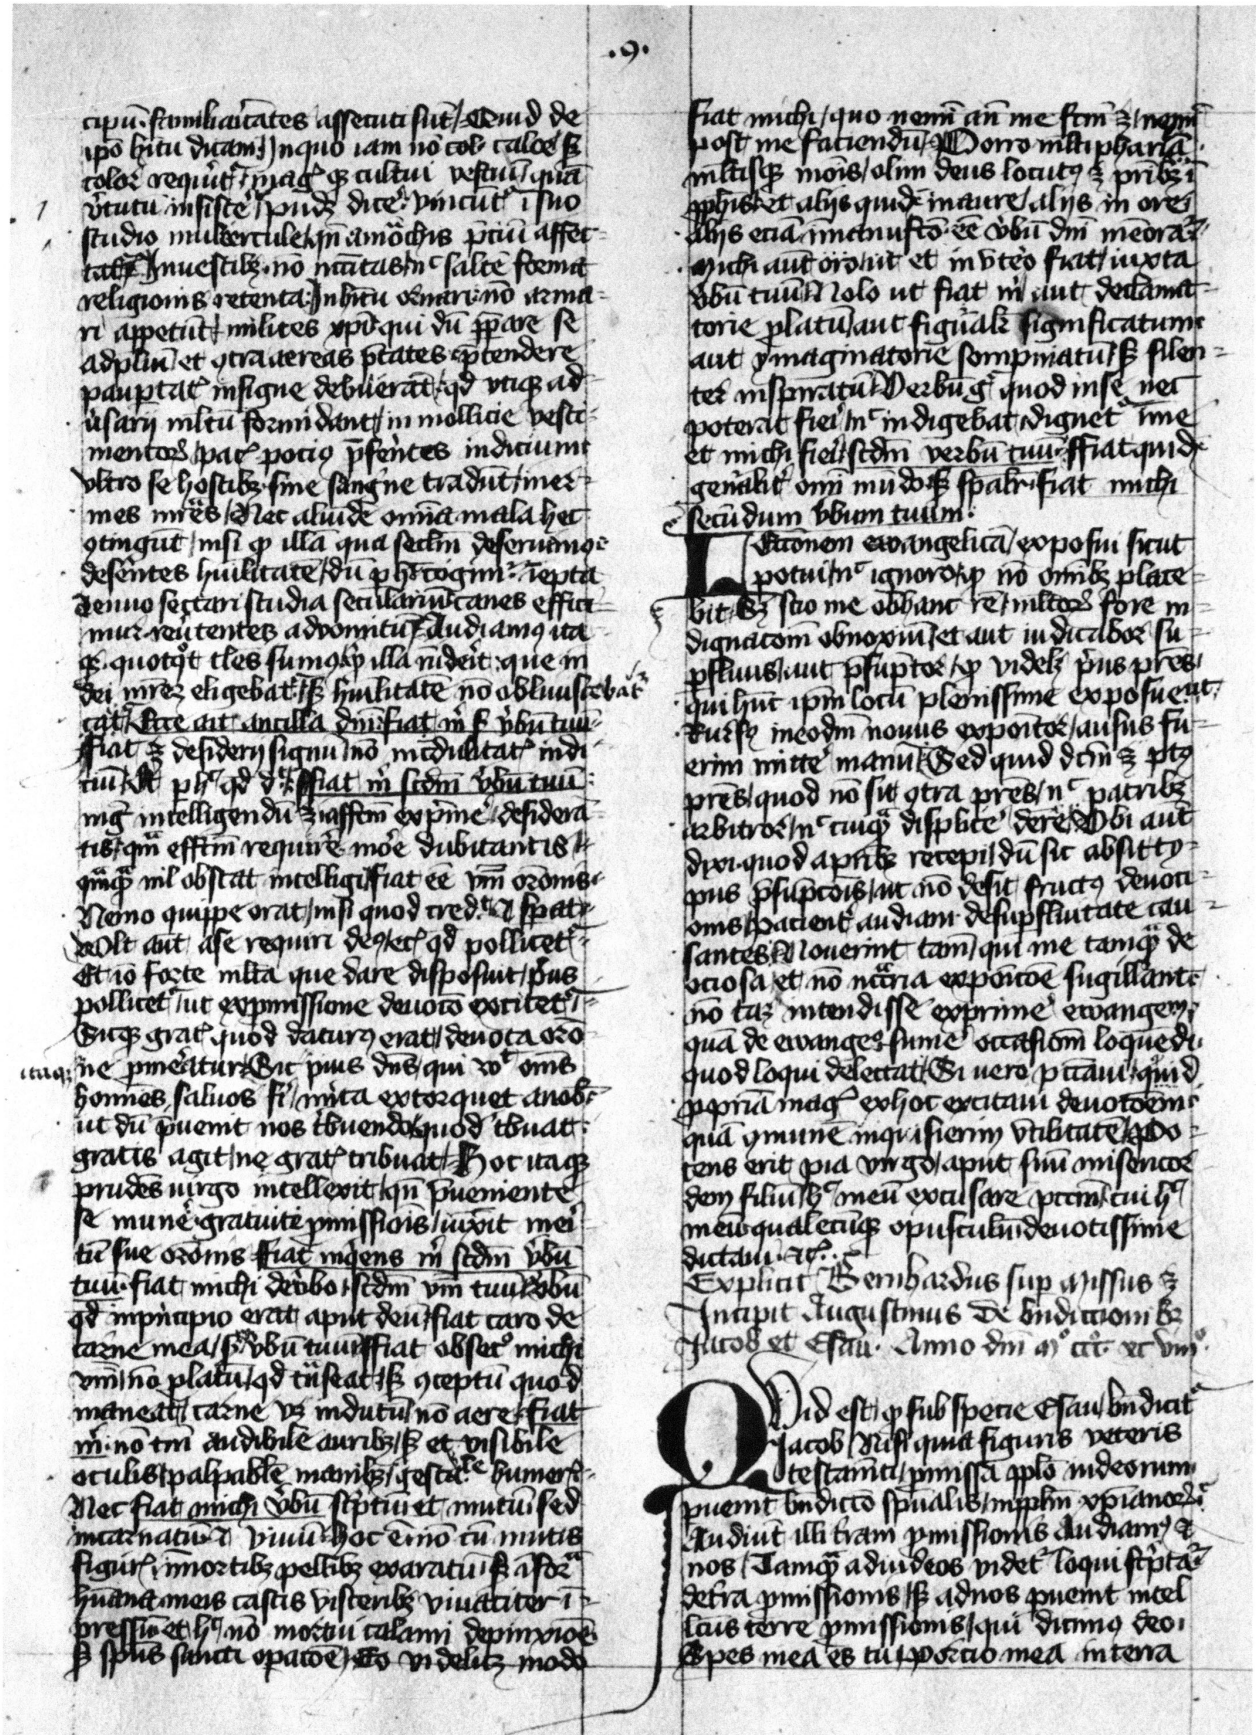 .9.
cipū familiaritates assecuti sūt / Quid de
ipō hītu dicam / In quo iam nō color calor s̄
color requirit᷑ mag̃ qʒ cultui vestiū quā
v̓tutū insistit᷑ / pudʒ dicē vincūt᷑ ī suo
studio muliercule / qn̄ a mōchis p̄ciū affec-
tat᷑ In vestibʒ nō nc̄citas / nc̄ saltē forma
religionis retenta In hītu ornari nō arma-
ri appetūt / milites xp̄i qui dū p̄pare se
ad pliū et ꝯtra aereas p̄tates p̄tendere
paup̄tat᷑ insigne debuerāt / qd̄ vtiqʒ ad-
v̓sarij ml̄tū formidant / in mollicie vesti-
mentoꝝ / pac᷑ pociꝰ p̄fer̄ntes indicium
vltro se hostibʒ sine sangr̄ne tradūt / iner-
mes nr̄es / Nec aliūde om̄ia mala hec
ꝯtingūt / nisi ꝙ illā qua sec̄lm deseruimꝰ
deser̄ntes hūilitatē / dū p h̄ cogim᷑ īepta
denuo sectari studia seculariū / canes effici-
mur reu̓tentes ad vomitū / Audiamꝰ ita-
qʒ quotqt̄ tl̄es sumꝰ / qͥd illa rn̄derit que in
dei mr̄eʒ eligebat᷑ s̄ hūilitatē nō obliuiscebat᷑
Ecce ait ancilla dn̄i fiat m̄ s̄ v̓bū tuū
Fiat ē desiderij signū nō incredulitat᷑ indi-
ciū / Et p h̄ qd̄ d᷑ fiat m̄ scd̄m v̓bū tuū
mḡ intelligendū ē affc̄m exp̄mē desiderā-
tis / qm̄ effc̄m requirē more dubitantis
qm̄qm̄ nl̄ obstat intelligi fiat eē vm̄ orōnis
Nemo quippe orat / nisi quod cred᷑ et sp̄at
wolt aūt a se requiri deꝰ / ec̄ qd̄ pollicet᷑
Et iō forte ml̄ta que dare disposuit / p̄us
pollicet᷑ / ut ex p̄missione deuoco excitet᷑
Sicqʒ grat᷑ quod daturꝰ erat / deuota orō-
ne p̄meratur Sic pius dn̄s / qui wlt om̄s
itaqʒ
homīes saluos fi̓ / m̄ita extorquet a nob᷑
ut dū p̄uenit nos t̓buendo / quod t̓buat
gratis agit / ne grat᷑ tribuat / Hoc itaqʒ
prudēs uirgo intellexit / qn̄ p̄ueniente
se munē gratuite p̄missiois / iūxit meri-
tū sue orōnis Fiat inquiens m̄ scd̄m v̓bū
tuū fiat michi de v̓bo scd̄m vm̄ tuū v̓bū
qd̄ in p̄ncipio erat aput deū / fiat caro de
carne mea / s̄ v̓bū tuū Fiat obsec᷑ michi
vm̄ / nō p̄latū / qd̄ tn̄seat / s̄ ꝯceptū quod
maneat / carne vʒ indutū / nō aere / fiat
m̄ nō tm̄ audibile auribʒ / s̄ et visibile
oculis / palpabile manibʒ / gestabile humer᷑
Nec fiat michi v̓bū sc̓ptū et mutū / sed
incarnatū et viuū hoc ē nō tū mutis
figur᷑ i mortibʒ pellibʒ exaratū / s̄ ī forā
hūana meis castis visceribʒ viuaciter ī-
pressū / et h̄ nō mortui calami depinxiōe
s̄ sp̄us sancti opacōe / Eo videlicʒ modo
fiat michi / quo nemī an̄ me fc̄m ē / nemī
post me faciendū / Porro ml̄tipharia
ml̄tisqʒ mōis / olim deus locutꝰ ē p̄ribʒ ī
ꝓph̄is et alijs quid᷑ in aure / alijs in ore
alijs eciā in manu fc̄ō eē v̓bū dn̄i memorat᷑
Michi aut oro / ut et in v̓tero fiat / iuxta
v̓bū tuū / Nolo ut fiat m̄ aut declama-
torie p̄latū / aut figur̓alit᷑ significatum
aut ymaginatorie sompniatū / s̄ silen-
ter inspiratū Verbū g᷑ quod in se nec
poterat fieri / nc̄ indigebat / dignet᷑ ī me
et michi fieri scd̄m verbū tuū Ffiat quid᷑
gener̓alit᷑ om̄i mūdo / s̄ sp̄alit᷑ fiat michi
secūdum v̓bum tuum
Lecconem ewangelicā / exposui sicut
potui / nc̄ ignoro / ꝙ nō om̄ibʒ place-
bit / Sʒ scio me ob hanc rē / ml̄toꝝ fore in-
dignacom̄ obnoxiū / et aut iudicabor su-
ꝑfluus / aut p̄sūptor / ꝙ videlʒ p̄us p̄res
qui hūt ip̄m locū plenissime exposuerūt
Rursꝰ in eodm̄ nouus expoitor / ausus fu-
erim mittē manū / Sed quid dc̄m ē p̓
p̄res / quod nō sit ꝯtra p̄res / nc̄ patribʒ
arbitror / nc̄ cuiqᷓ displicē debere / Ubi aut
dixi quod a p̄ribʒ recepi / dū sic absit ty-
pus p̄sūpcois / ut nō desit fructꝰ deuoci-
onis / pacient᷑ audiam de suꝑfluitate cau-
santes / Nouerint tam̄ / qui me tamqᷓ de
ociosa et nō nc̄aria expoīcōe sugillant
nō tā intendisse exprimē ewangeliū
quā de ewangeō sumē occasiom̄ loquēdi
quod loqui delectat / Si vero pctaui / quid
ꝓpriā mag᷑ ex hoc excitaui deuocōem
quā ꝯmunē inquisierim vtilitatē / Po-
tens erit pia virgo / aput suū misericor-
dem filiū / h̄ meū excusare pctm̄ / cui h̄
meū qualecūqʒ opusculū deuotissime
dictaui ⁊c̄.
Explicit Bernhardus sup Missus ē
Incipit Augustinus de bn̄diccionibʒ
Jacob et Esau. Anno dn̄i Mᵒ ccc xc viiiᵒ
Quid est / ꝙ sub specie Esau bn̄dicit᷑
Jacob / Nisi quia figuris veteris
testamēti / p̄missa pp̄lo iudeorum
ꝑuenit bn̄dicco sp̄ualis / in pp̄lm xp̄ianoꝝ
Audiūt illi tr̄am ꝓmissionis / Audiamꝰ et
nos / Tamqᷓ ad iudeos videt᷑ loqui sc̓pta᷑
de tr̄a ꝓmissionis / s̄ ad nos ꝑuenit intel-
lcūs terre ꝓmissionis / qui dicimꝰ deo
Spes mea es tu / porcio mea in terra